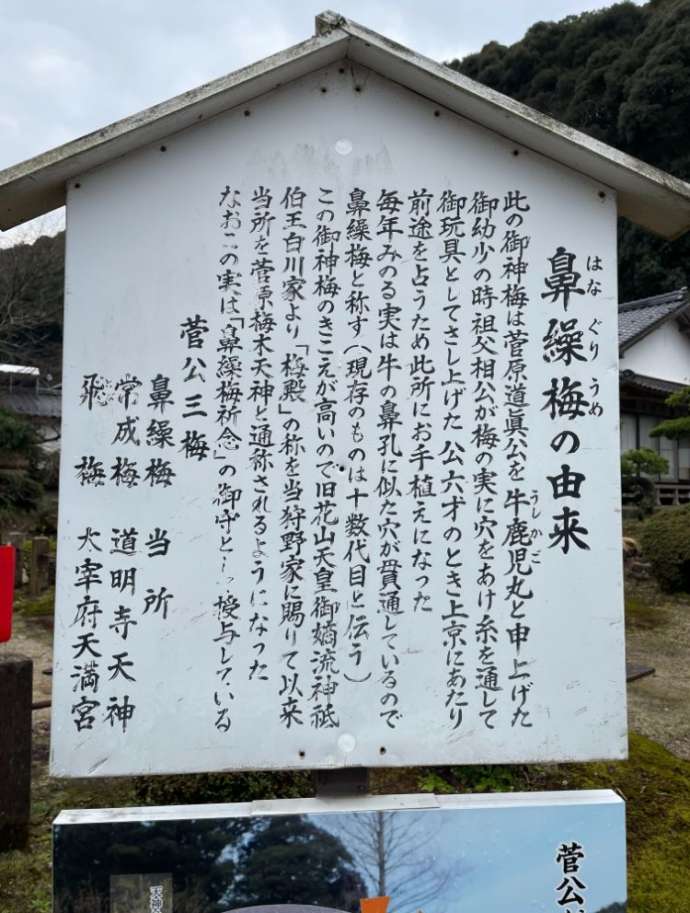 鼻繰梅の由来
はなぐりうめ
此の御神梅は菅原道眞公を牛鹿児丸と申上げた
うしかご
御幼少の時祖父相公が梅の実に穴をあけ糸を通して
御玩具としてさし上げた公六才のとき上京にあたり
前途を占うため此所にお手植えになった
毎年みのる実は牛の鼻孔に似た穴が貫通しているので
鼻繰梅と称す(現存のものは十数代目と伝う)
この御神梅のきこえが高いので旧花山天皇御嫡流神祗
伯王白川家より「梅殿」の称を当狩野家に賜りて以来
当所を菅原梅木天神と通称されるようになった
なおこの実は「鼻繰梅祈念」の御守として授与している
菅公三梅
鼻繰梅 当所
常成梅 道明寺天神
飛梅 太宰府天満宮
菅公
天神